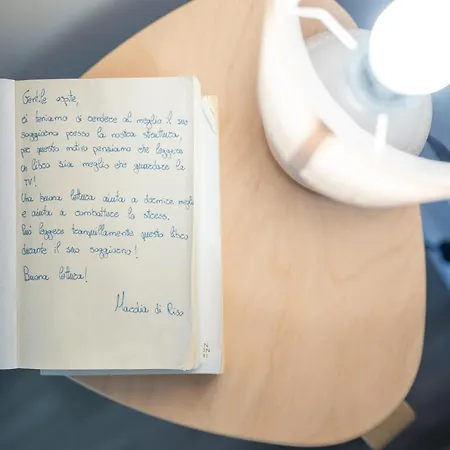 Gentile ospite,
ci teniamo di rendere al meglio il suo
soggiorno presso la nostra struttura,
per questo motivo pensiamo che leggere
un libro sia meglio che guardare la
TV!
Una buona lettura aiuta a dormire meglio
e aiuta a combattere lo stress.
Può leggere tranquillamente questo libro
durante il suo soggiorno!
Buona lettura!
Macchia di Riso